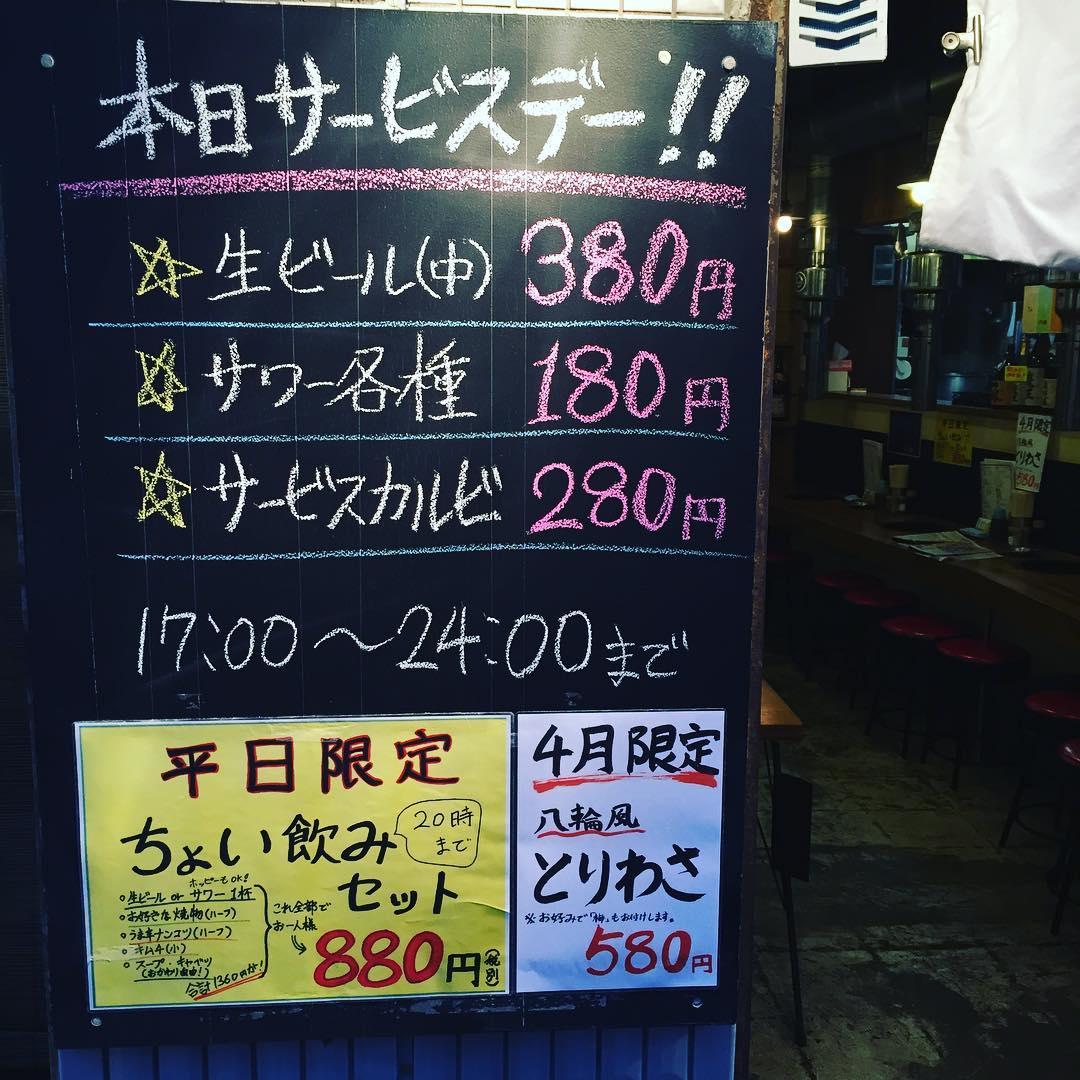 本日サービスデー!!
☆生ビール(中) 380円
☆サワー各種 180円
☆サービスカルビ 280円
17:00〜24:00まで
平日限定
ちょい飲み
20時
まで
セット
ホッピーもOK!
○生ビール or サワー1杯
○お好きな焼物(ハーフ)
○うま辛ナンコツ(ハーフ)
○キムチ(小)
○スープ・キャベツ
(おかわり自由!)
合計1360円が!
これ全部で
お一人様
880円
税別
4月限定
八輪風
とりわさ
※お好みで「梅」もお付けします。
580円
平日限定
ちょい飲み
4月限定
八輪風
とりわさ
580円